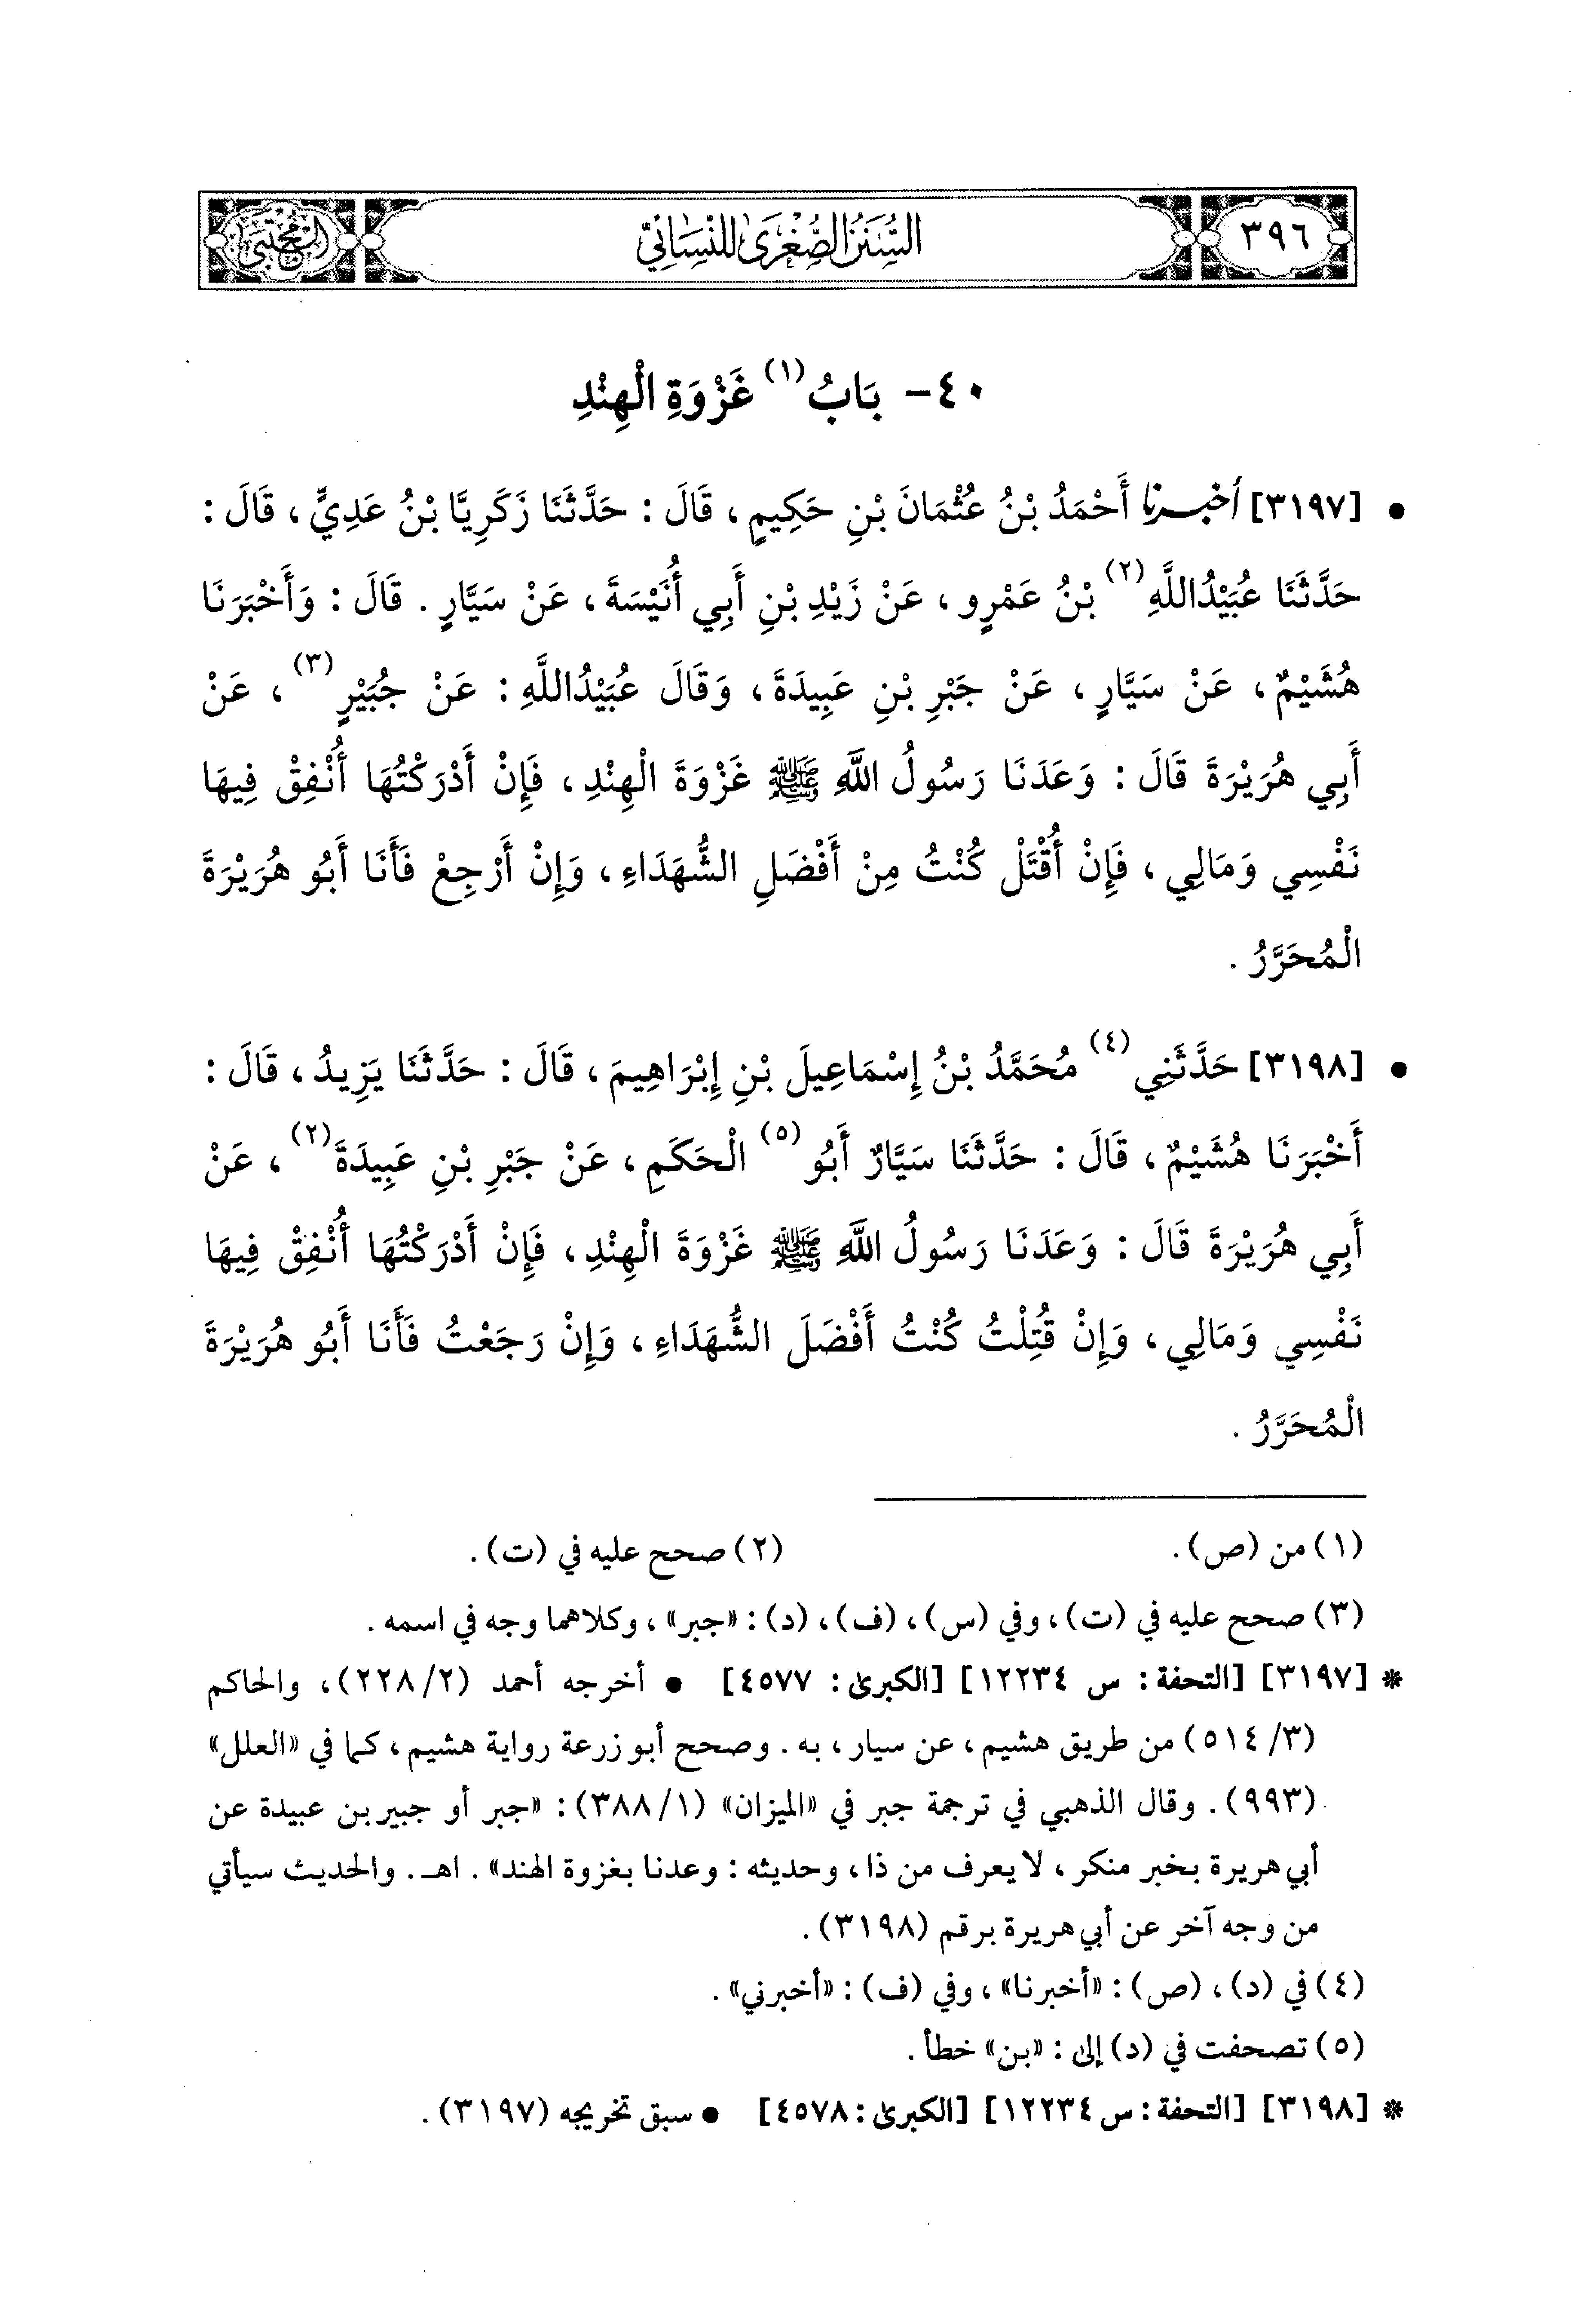 ٣٩٦
السُّنَنُ الصُّغْرَىٰ لِلنَّسَائِيِّ
المُجْتَبَى
٤٠- بَابُ (١) غَزْوَةِ الْهِنْدِ
• [٣١٩٧] أَخْبَرنا أَحْمَدُ بْنُ عُثْمَانَ بْنِ حَكِيمٍ ، قَالَ : حَدَّثَنَا زَكَرِيَّا بْنُ عَدِيٍّ ، قَالَ :
حَدَّثَنَا عُبَيْدُاللَّهِ (٢) بْنُ عَمْرٍو ، عَنْ زَيْدِ بْنِ أَبِي أُنَيْسَةَ ، عَنْ سَيَّارٍ . قَالَ : وَأَخْبَرَنَا
هُشَيْمٌ ، عَنْ سَيَّارٍ ، عَنْ جَبْرِ بْنِ عَبِيدَةَ ، وَقَالَ عُبَيْدُاللَّهِ : عَنْ جُبَيْرٍ (٣) ، عَنْ
أَبِي هُرَيْرَةَ قَالَ : وَعَدَنَا رَسُولُ اللَّهِ ﷺ غَزْوَةَ الْهِنْدِ ، فَإِنْ أَدْرَكْتُهَا أُنْفِقْ فِيهَا
نَفْسِي وَمَالِي ، فَإِنْ أُقْتَلْ كُنْتُ مِنْ أَفْضَلِ الشُّهَدَاءِ ، وَإِنْ أَرْجِعْ فَأَنَا أَبُو هُرَيْرَةَ
الْمُحَرَّرُ .
• [٣١٩٨] حَدَّثَنِي (٤) مُحَمَّدُ بْنُ إِسْمَاعِيلَ بْنِ إِبْرَاهِيمَ ، قَالَ : حَدَّثَنَا يَزِيدُ ، قَالَ :
أَخْبَرَنَا هُشَيْمٌ ، قَالَ : حَدَّثَنَا سَيَّارٌ أَبُو (٥) الْحَكَمِ ، عَنْ جَبْرِ بْنِ عَبِيدَةَ (٢) ، عَنْ
أَبِي هُرَيْرَةَ قَالَ : وَعَدَنَا رَسُولُ اللَّهِ ﷺ غَزْوَةَ الْهِنْدِ ، فَإِنْ أَدْرَكْتُهَا أُنْفِقْ فِيهَا
نَفْسِي وَمَالِي ، وَإِنْ قُتِلْتُ كُنْتُ أَفْضَلَ الشُّهَدَاءِ ، وَإِنْ رَجَعْتُ فَأَنَا أَبُو هُرَيْرَةَ
الْمُحَرَّرُ .
(١) من (ص) . (٢) صحح عليه في (ت) .
(٣) صحح عليه في (ت) ، وفي (س) ، (ف) ، (د) : «جبر» ، وكلاهما وجه في اسمه .
* [٣١٩٧] [التحفة : س ١٢٢٣٤] [الكبرى : ٤٥٧٧] • أخرجه أحمد (٢/ ٢٢٨) ، والحاكم
(٣/ ٥١٤) من طريق هشيم ، عن سيار ، به . وصحح أبو زرعة رواية هشيم ، كما في «العلل»
(٩٩٣) . وقال الذهبي في ترجمة جبر في «الميزان» (١/ ٣٨٨) : «جبر أو جبير بن عبيدة عن
أبي هريرة بخبر منكر ، لا يعرف من ذا ، وحديثه : وعدنا بغزوة الهند» . اهـ . والحديث سيأتي
من وجه آخر عن أبي هريرة برقم (٣١٩٨) .
(٤) في (د) ، (ص) : «أخبرنا» ، وفي (ف) : «أخبرني» .
(٥) تصحفت في (د) إلى : «بن» خطأ .
* [٣١٩٨] [التحفة : س ١٢٢٣٤] [الكبرى : ٤٥٧٨] • سبق تخريجه (٣١٩٧) .